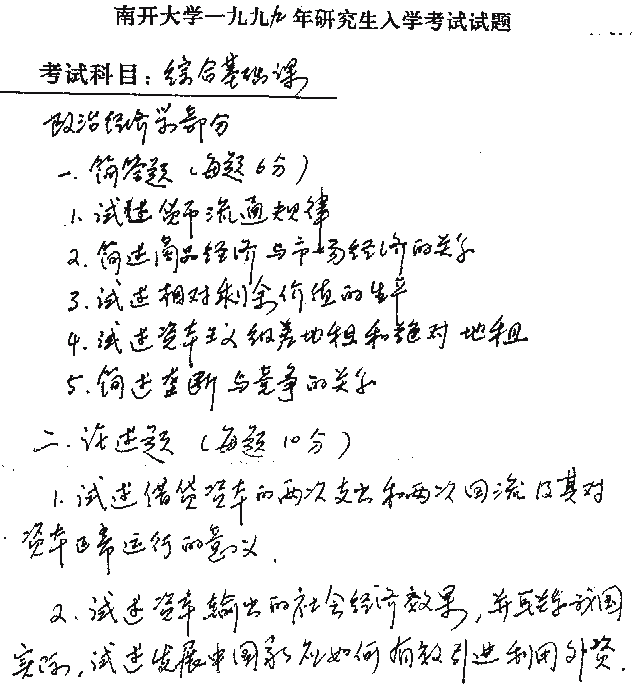 南开大学一九九九年研究生入学考试试题
考试科目：综合基础课
政治经济学部分
一.简答题（每题6分）
1.试述货币流通规律
2.简述商品经济与市场经济的关系
3.试述相对剩余价值的生产
4.试述资本主义级差地租和绝对地租
5.简述垄断与竞争的关系
二.论述题（每题10分）
1.试述借贷资本的两次支出和两次回流及其对
资本正常运行的意义.
2.试述资本输出的社会经济效果,并联系我国
实际,试述发展中国家应如何有效引进利用外资.